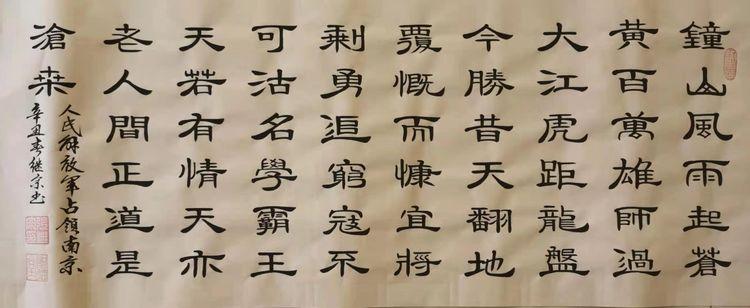 鐘山風雨起蒼
黄百萬雄師過
大江虎距龍盤
今勝昔天翻地
覆慨而慷宜將
剩勇追窮寇不
可沽名學霸王
天若有情天亦
老人間正道是
滄桑
人民解放軍占領南京
辛丑春继宗书